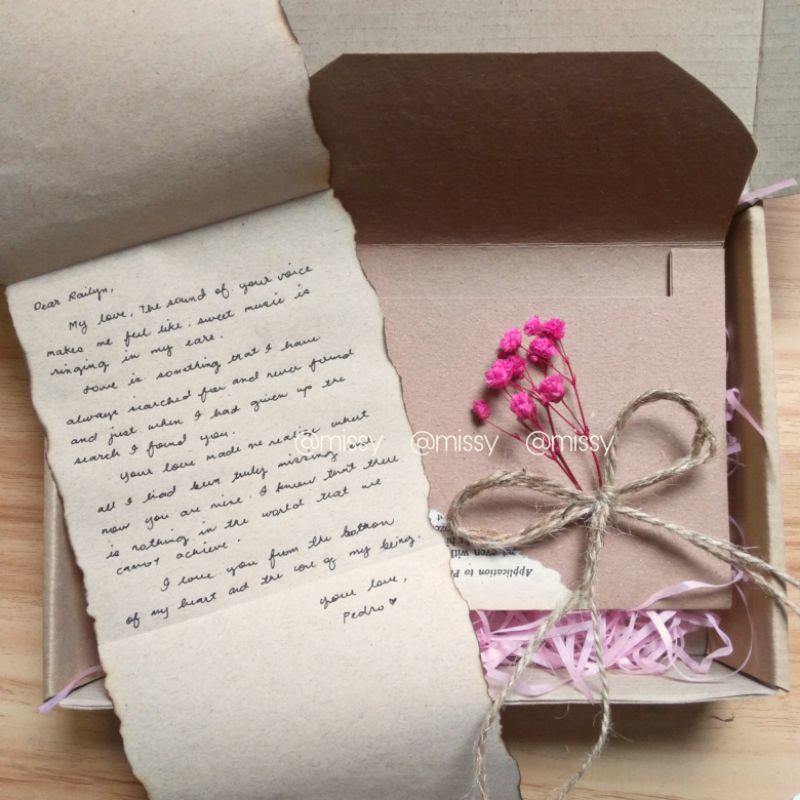 Dear Railyn,
My love, The sound of your voice
makes me feel like, sweet music is
ringing in my ears.
Love is something that I have
always searched for and never found
and just when I had given up the
search I found you.
Your love made me realize what
all I had been truly missing and
now you are mine. I know that there
is nothing in the world that we
cannot achieve.
I love you from the bottom
of my heart and the core of my being.
your love,
Pedro
@missy @missy @missy
even with
Application to